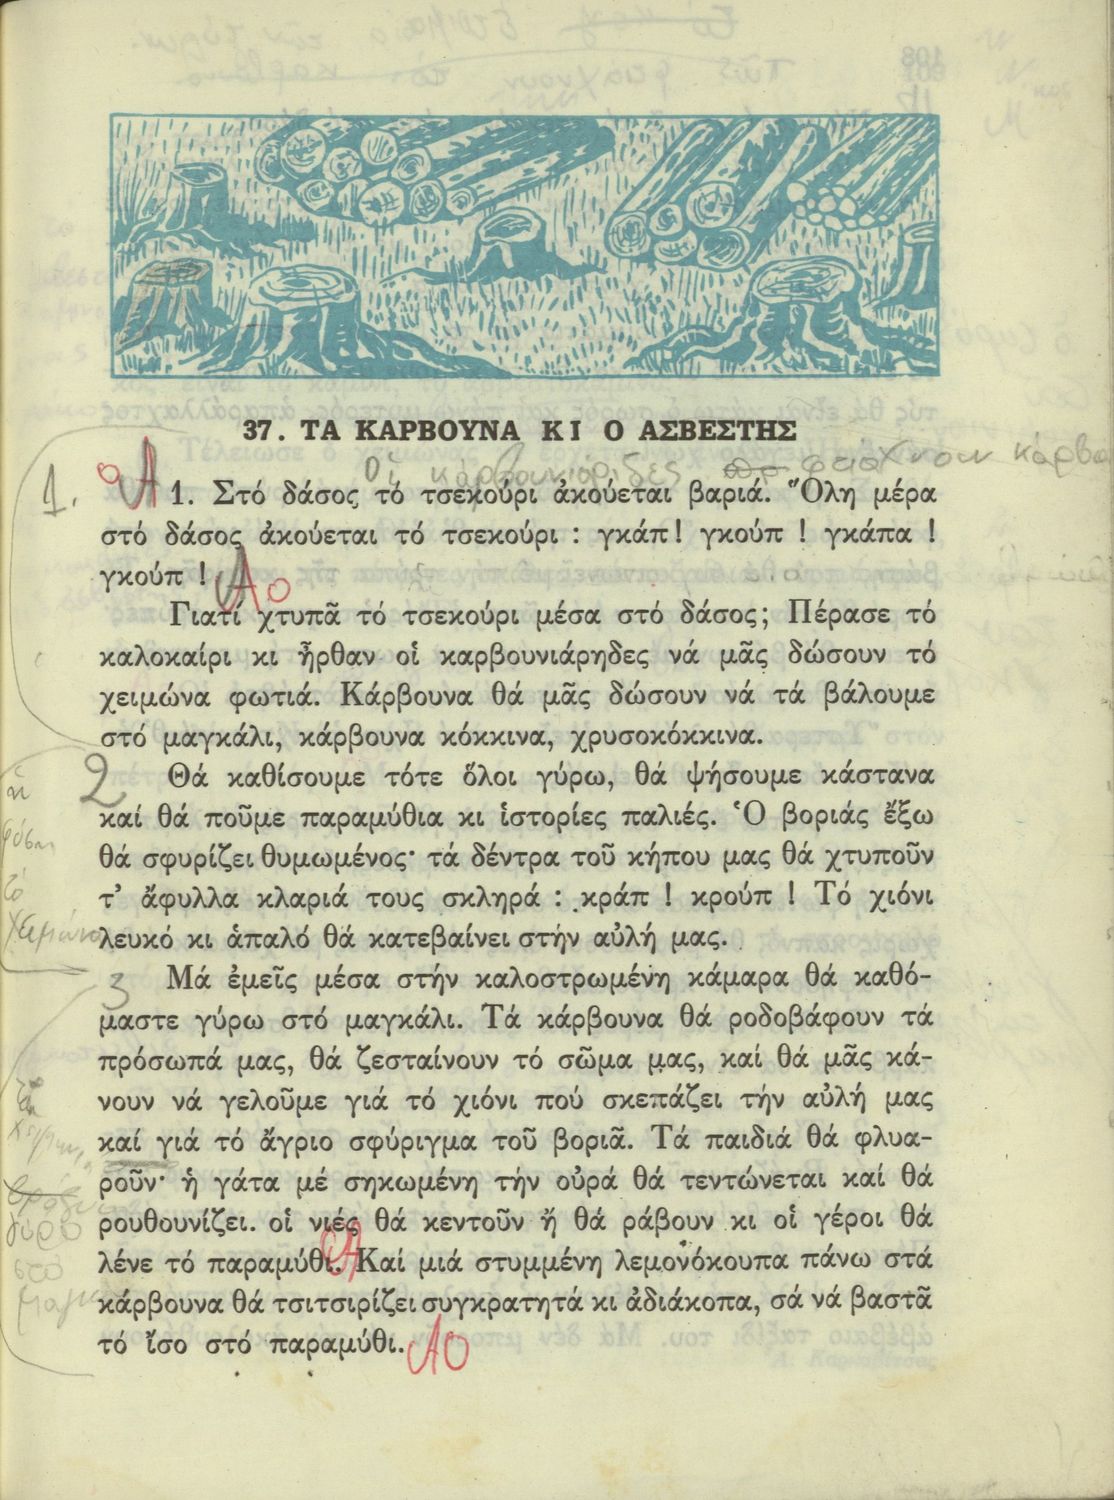 37. ΤΑ ΚΑΡΒΟΥΝΑ ΚΙ Ο ΑΣΒΕΣΤΗΣ
Οἱ καρβουνιάρηδες φτιάχνουν κάρβο
1.
1. Στό δάσος τό τσεκούρι ἀκούεται βαριά. Ὅλη μέρα
στό δάσος ἀκούεται τό τσεκούρι : γκάπ! γκούπ ! γκάπα !
γκούπ !
Γιατί χτυπᾶ τό τσεκούρι μέσα στό δάσος; Πέρασε τό
καλοκαίρι κι ἦρθαν οἱ καρβουνιάρηδες νά μᾶς δώσουν τό
χειμώνα φωτιά. Κάρβουνα θά μᾶς δώσουν νά τά βάλουμε
στό μαγκάλι, κάρβουνα κόκκινα, χρυσοκόκκινα.
2
Θά καθίσουμε τότε ὅλοι γύρω, θά ψήσουμε κάστανα
καί θά ποῦμε παραμύθια κι ἱστορίες παλιές. Ὁ βοριάς ἔξω
θά σφυρίζει θυμωμένος· τά δέντρα τοῦ κήπου μας θά χτυποῦν
τ' ἄφυλλα κλαριά τους σκληρά : κράπ ! κρούπ ! Τό χιόνι
λευκό κι ἁπαλό θά κατεβαίνει στήν αὐλή μας.
3
Μά ἐμεῖς μέσα στήν καλοστρωμένη κάμαρα θά καθό-
μαστε γύρω στό μαγκάλι. Τά κάρβουνα θά ροδοβάφουν τά
πρόσωπά μας, θά ζεσταίνουν τό σῶμα μας, καί θά μᾶς κά-
νουν νά γελοῦμε γιά τό χιόνι πού σκεπάζει τήν αὐλή μας
καί γιά τό ἄγριο σφύριγμα τοῦ βοριᾶ. Τά παιδιά θά φλυα-
ροῦν· ἡ γάτα μέ σηκωμένη τήν οὐρά θά τεντώνεται καί θά
ρουθουνίζει. οἱ νιές θά κεντοῦν ἤ θά ράβουν κι οἱ γέροι θά
λένε τό παραμύθι. Καί μιά στυμμένη λεμονόκουπα πάνω στά
κάρβουνα θά τσιτσιρίζει συγκρατητά κι ἀδιάκοπα, σά νά βαστᾶ
τό ἴσο στό παραμύθι.